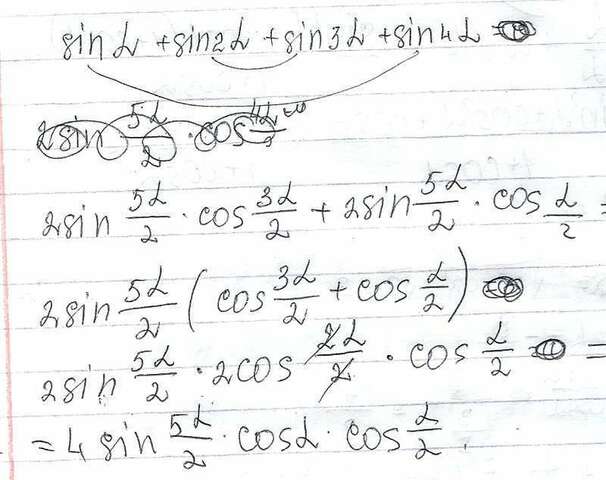 sin α + sin 2α + sin 3α + sin 4α =
2 sin 5α/2 · cos
2 sin 5α/2 · cos 3α/2 + 2 sin 5α/2 · cos α/2 =
2 sin 5α/2 ( cos 3α/2 + cos α/2 )
2 sin 5α/2 · 2 cos 2α/2 · cos α/2 =
= 4 sin 5α/2 · cos α · cos α/2 .